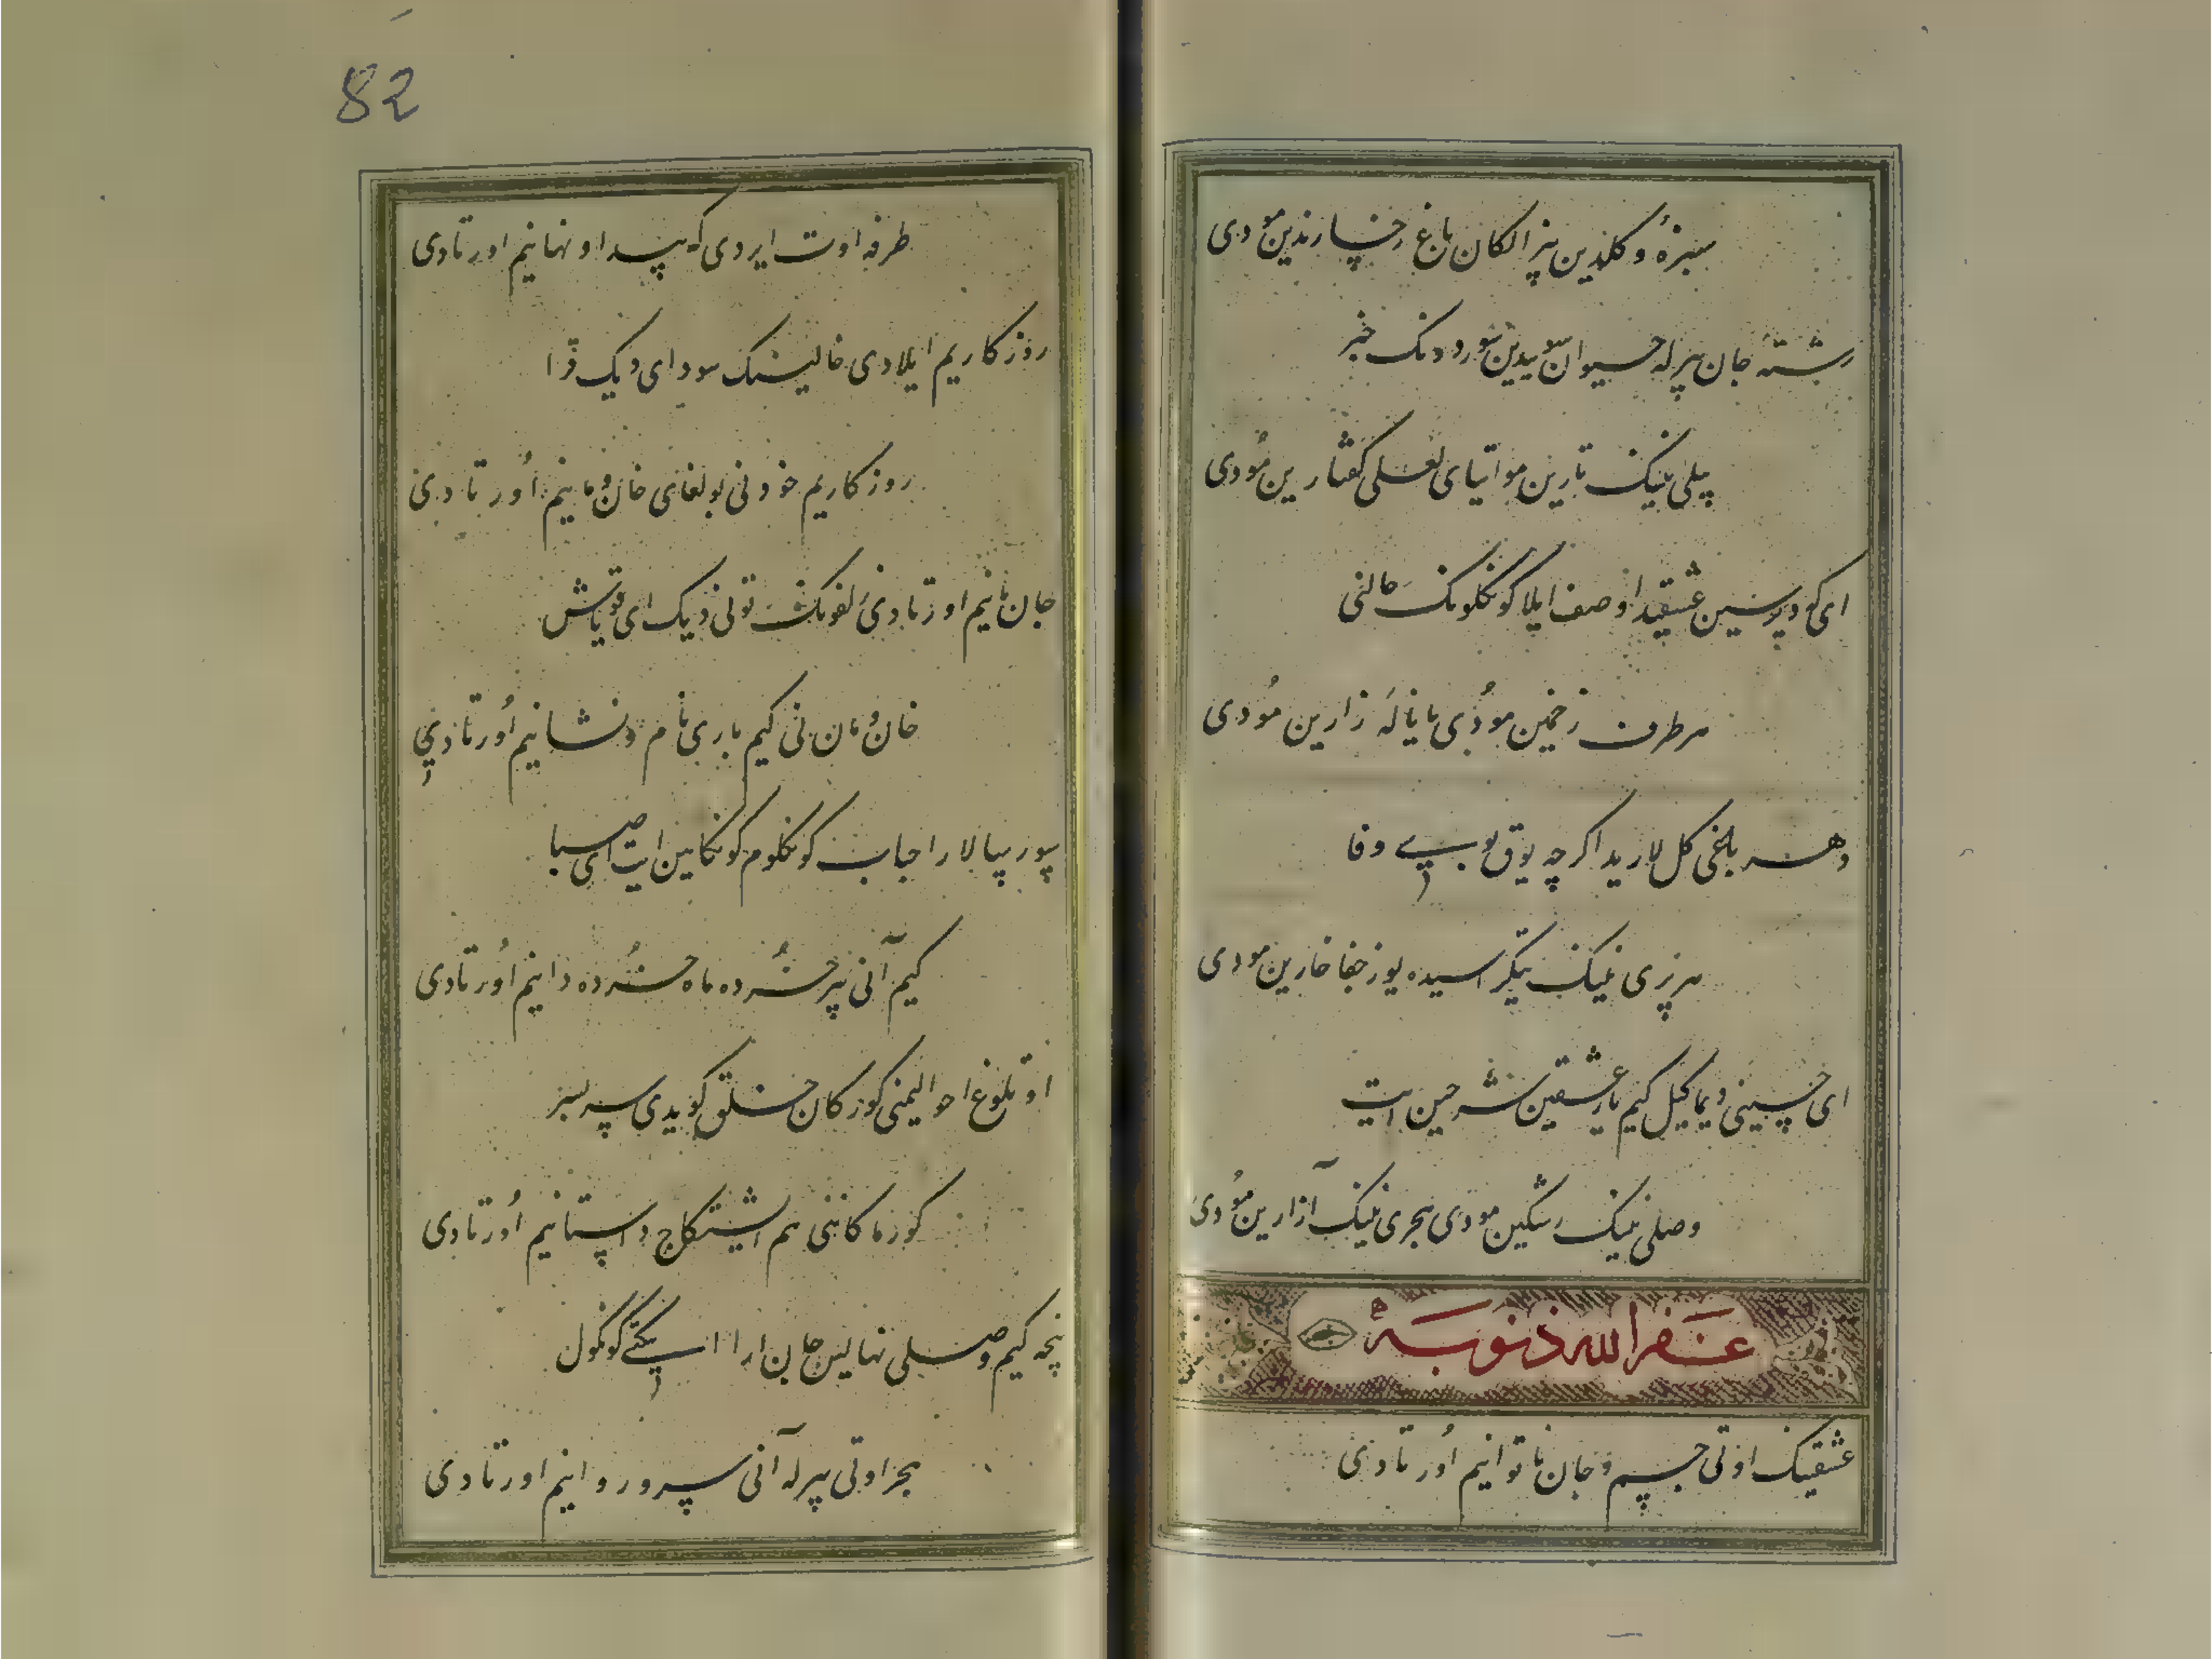 سبزهٔ و کلدین بیزالکان باغ رخسارندین مودی
رشتهٔ جان بیرله حیوان سوییدین سوردونک خبر
بیلی نینک تارین مو اتیای لعلی کفتارین مودی
ای کودیوسین عشقیدا وصف ایلا کونکلونک حالنی
هر طرف زخمین مودی یا نالهٔ زارین مودی
دهر باغی کل لاریدا اکرچه یوق بوی وفا
هر بری نینک تیکراسیده یوز جفا خارین مودی
ای حسینی دیماکیل کیم یار عشقین شرحین ایت
وصلی نینک رشکین مودی هجری نینک آزارین مودی
غفرالله ذنوبه
عشقینک اوتی جسم و جان ناتوانیم اورتادی
82
طرفه اوت ایردی که پیدا و نهانیم اورتادی
روزکاریم ایلادی خالینک سودای دیک قرا
روزکاریم خود نی بولغای خان و مانیم اورتادی
جان مانیم اورتادی زلفونک تونی دیک ای قویاش
خان و مان نی کیم باری نام و نشانیم اورتادی
پور پیالارا جاب کونکلوم کونکامین ایت ای صبا
کیم آنی بیر خرده ماه خرده دانیم اورتادی
اوتلوغ احوالیمنی کورکان خلق کویدی سربسر
کورماکاننی هم ایشیتکاج داستانیم اورتادی
نیچه کیم وصلی نهالین جان ارا ایکتی کونکول
هجر اوتی بیرله آنی سرو روانیم اورتادی